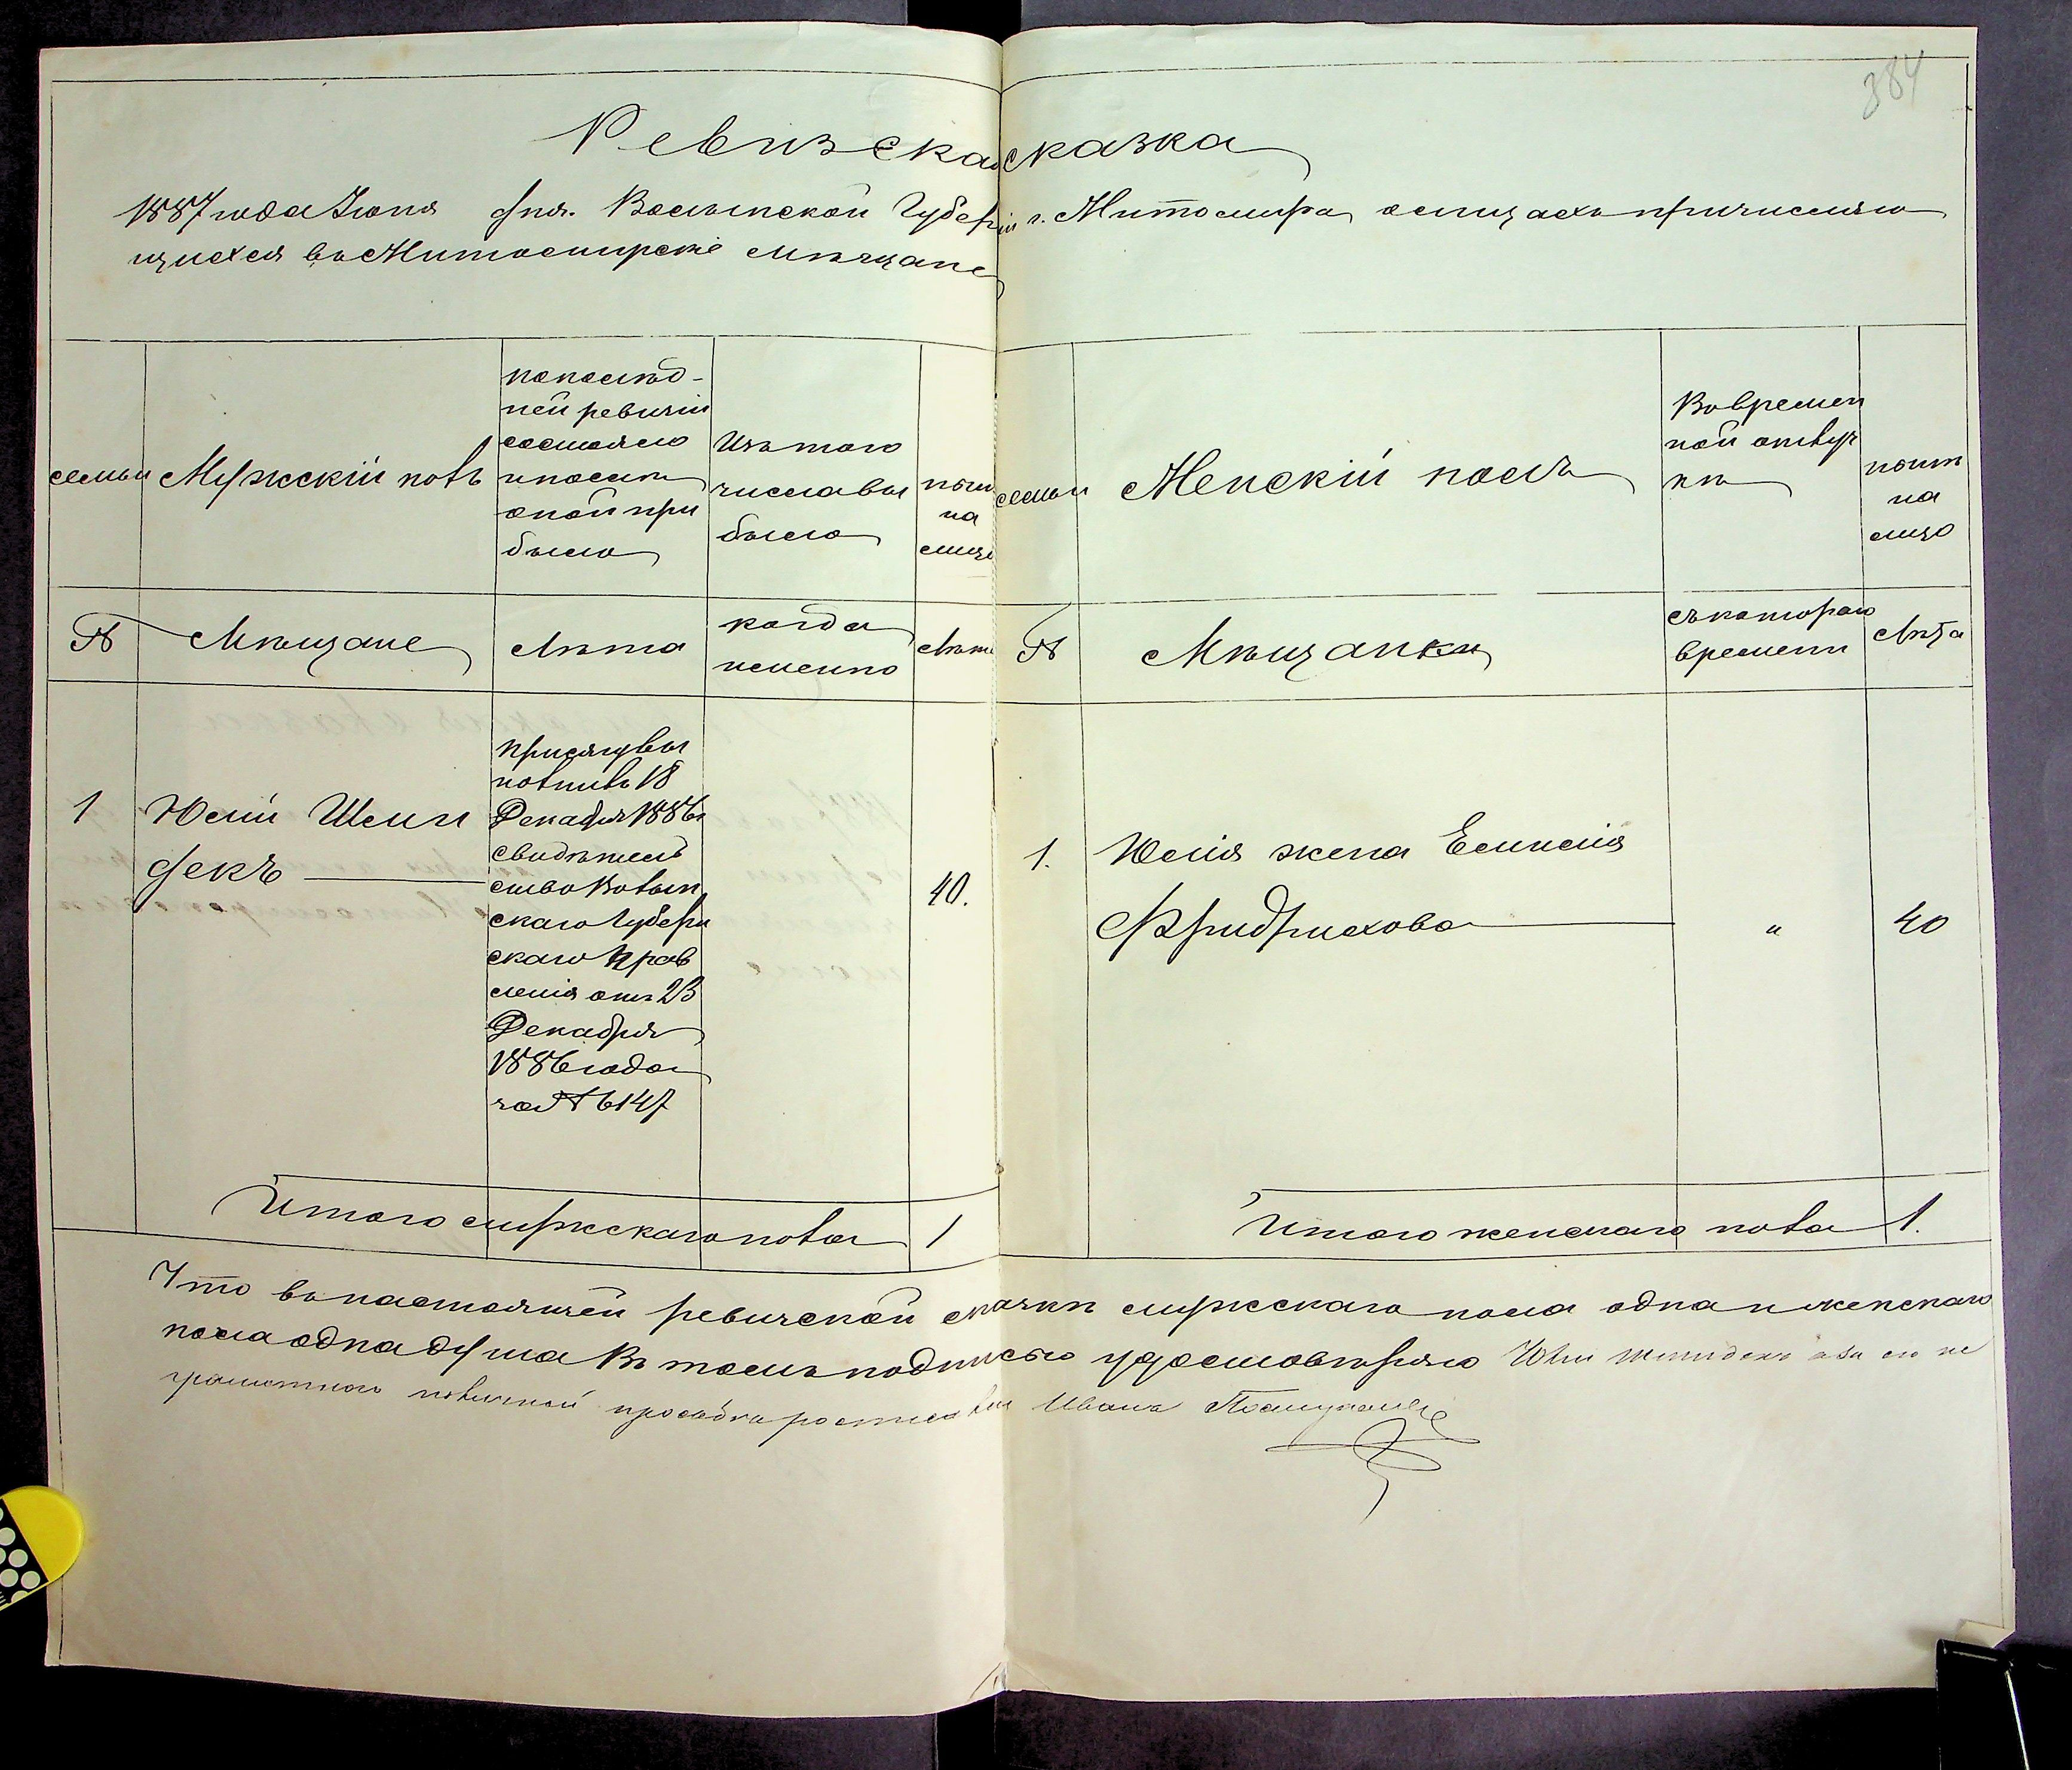 384
Ревизская сказка
1887 года Іюня дня. Волынской Губерніи г. Житомира, о лицахъ причисляю
щихся въ Житомирскіе мѣщане
семьи
Мужскій полъ
по послѣд-
ней ревизіи
состояло
и послѣ
оной при
было
Изъ того
числа вы
было
нынѣ
на
лицо
семьи
Женскій полъ
Во времен
ной отлуч
кѣ
нынѣ
на
лицо
№
Мѣщане
Лѣта
когда
именно
Лѣта
№
Мѣщанки
съ котораго
времени
Лѣта
1
Юлій Шмин
декъ
Присягу вы
полнилъ 18
Декабря 1886 г
свидѣтель
ство Волын
скаго Губерн
скаго Прав
ленія отъ 23
Декабря
1886 года
за № 6147
40.
1.
Юлія жена Емилія
Фридрихова
"
40
Итого мужскаго пола 1
Итого женскаго пола 1.
Что въ настоящей ревизской сказкѣ мужскаго пола одна и женскаго
пола одна душа въ томъ подписью удостовѣряю Юлій Шминдекъ а за его не
грамотнаго по личной просьбѣ росписался Иванъ